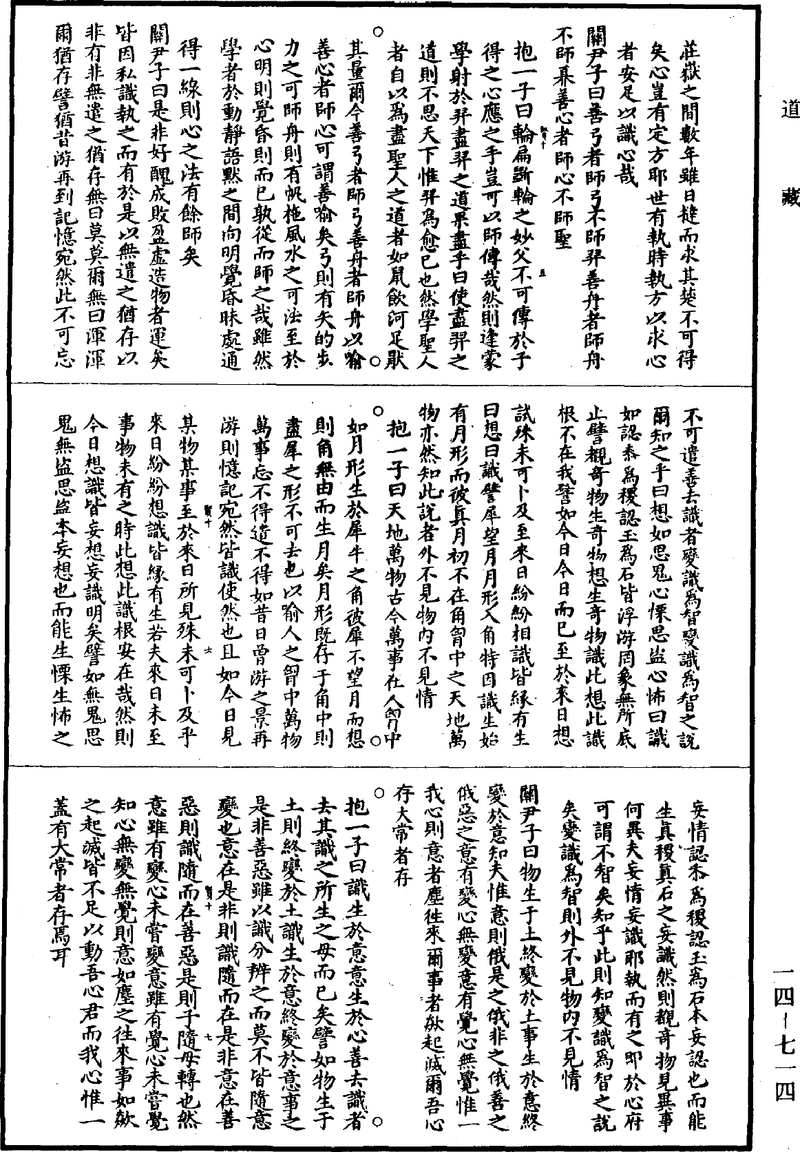 道藏
莊嶽之間數年雖日撻而求其楚不可得
矣心豈有定方耶世有執時執方以求心
者安足以識心哉
關尹子曰善弓者師弓不師羿善舟者師舟
不師奡善心者師心不師聖
抱一子曰輪扁斲輪之妙父不可傳於子
得之心應之手豈可以師傳哉然則逢蒙
學射於羿盡羿之道果盡乎曰使盡羿之
道則不思天下惟羿為愈已也然學聖人
者自以為盡聖人之道者如鼠飲河足猒
其量爾今善弓者師弓善舟者師舟以喻
善心者師心可謂善喻矣弓則有矢的步
力之可師舟則有帆拖風水之可法至於
心明則覺昏則而已孰從而師之哉雖然
學者於動靜語默之間向明覺昏昧處通
得一線則心之法有餘師矣
關尹子曰是非好醜成敗盈虛造物者運矣
皆因私識執之而有於是以無遣之猶存以
非有非無遣之猶存無曰莫莫爾無曰渾渾
爾猶存譬猶昔游再到記憶宛然此不可忘
不可遣善去識者變識為智變識為智之說
爾知之乎曰想如思鬼心慄思盜心怖曰識
如認黍為稷認玉為石皆浮游罔象無所底
止譬覩奇物生奇物想生奇物識此想此識
根不在我譬如今日今日而已至於來日想
試殊未可卜及至來日紛紛相識皆緣有生
曰想曰識譬犀望月月形入角特因識生始
有月形而彼真月初不在角胷中之天地萬
物亦然知此說者外不見物內不見情
抱一子曰天地萬物古今萬事在人胷中
如月形生於犀牛之角彼犀不望月而想
則角無由而生月矣月形既存于角中則
盡犀之形不可去也以喻人之胷中萬物
萬事忘不得遣不得如昔日曾游之景再
游則憶記宛然皆識使然也且如今日見
某物某事至於來日所見殊未可卜及乎
來日紛紛想識皆緣有生若夫來日未至
事物未有之時此想此識根安在哉然則
今日想識皆妄想妄識明矣譬如無鬼思
鬼無盜思盜本妄想也而能生慄生怖之
妄情認黍為稷認玉為石本妄認也而能
生真稷真石之妄識然則覩奇物見異事
何異夫妄情妄識耶執而有之即於心府
可謂不智矣知乎此則知變識為智之說
矣變識為智則外不見物內不見情
關尹子曰物生于土終變於土事生於意終
變於意知夫惟意則俄是之俄非之俄善之
俄惡之意有變心無變意有覺心無覺惟一
我心則意者塵徃來爾事者欻起滅爾吾心
存大常者存
抱一子曰識生於意意生於心善去識者
去其識之所生之母而已矣譬如物生于
土則終變於土識生於意終變於意事之
是非善惡雖以識分辨之而莫不皆隨意
變也意在是非則識隨而在是非意在善
惡則識隨而在善惡是則子隨母轉也然
意雖有變心未嘗變意雖有覺心未嘗覺
知心無變無覺則意如塵之往來事如欻
之起滅皆不足以動吾心君而我心惟一
蓋有大常者存焉耳
一四－七一四